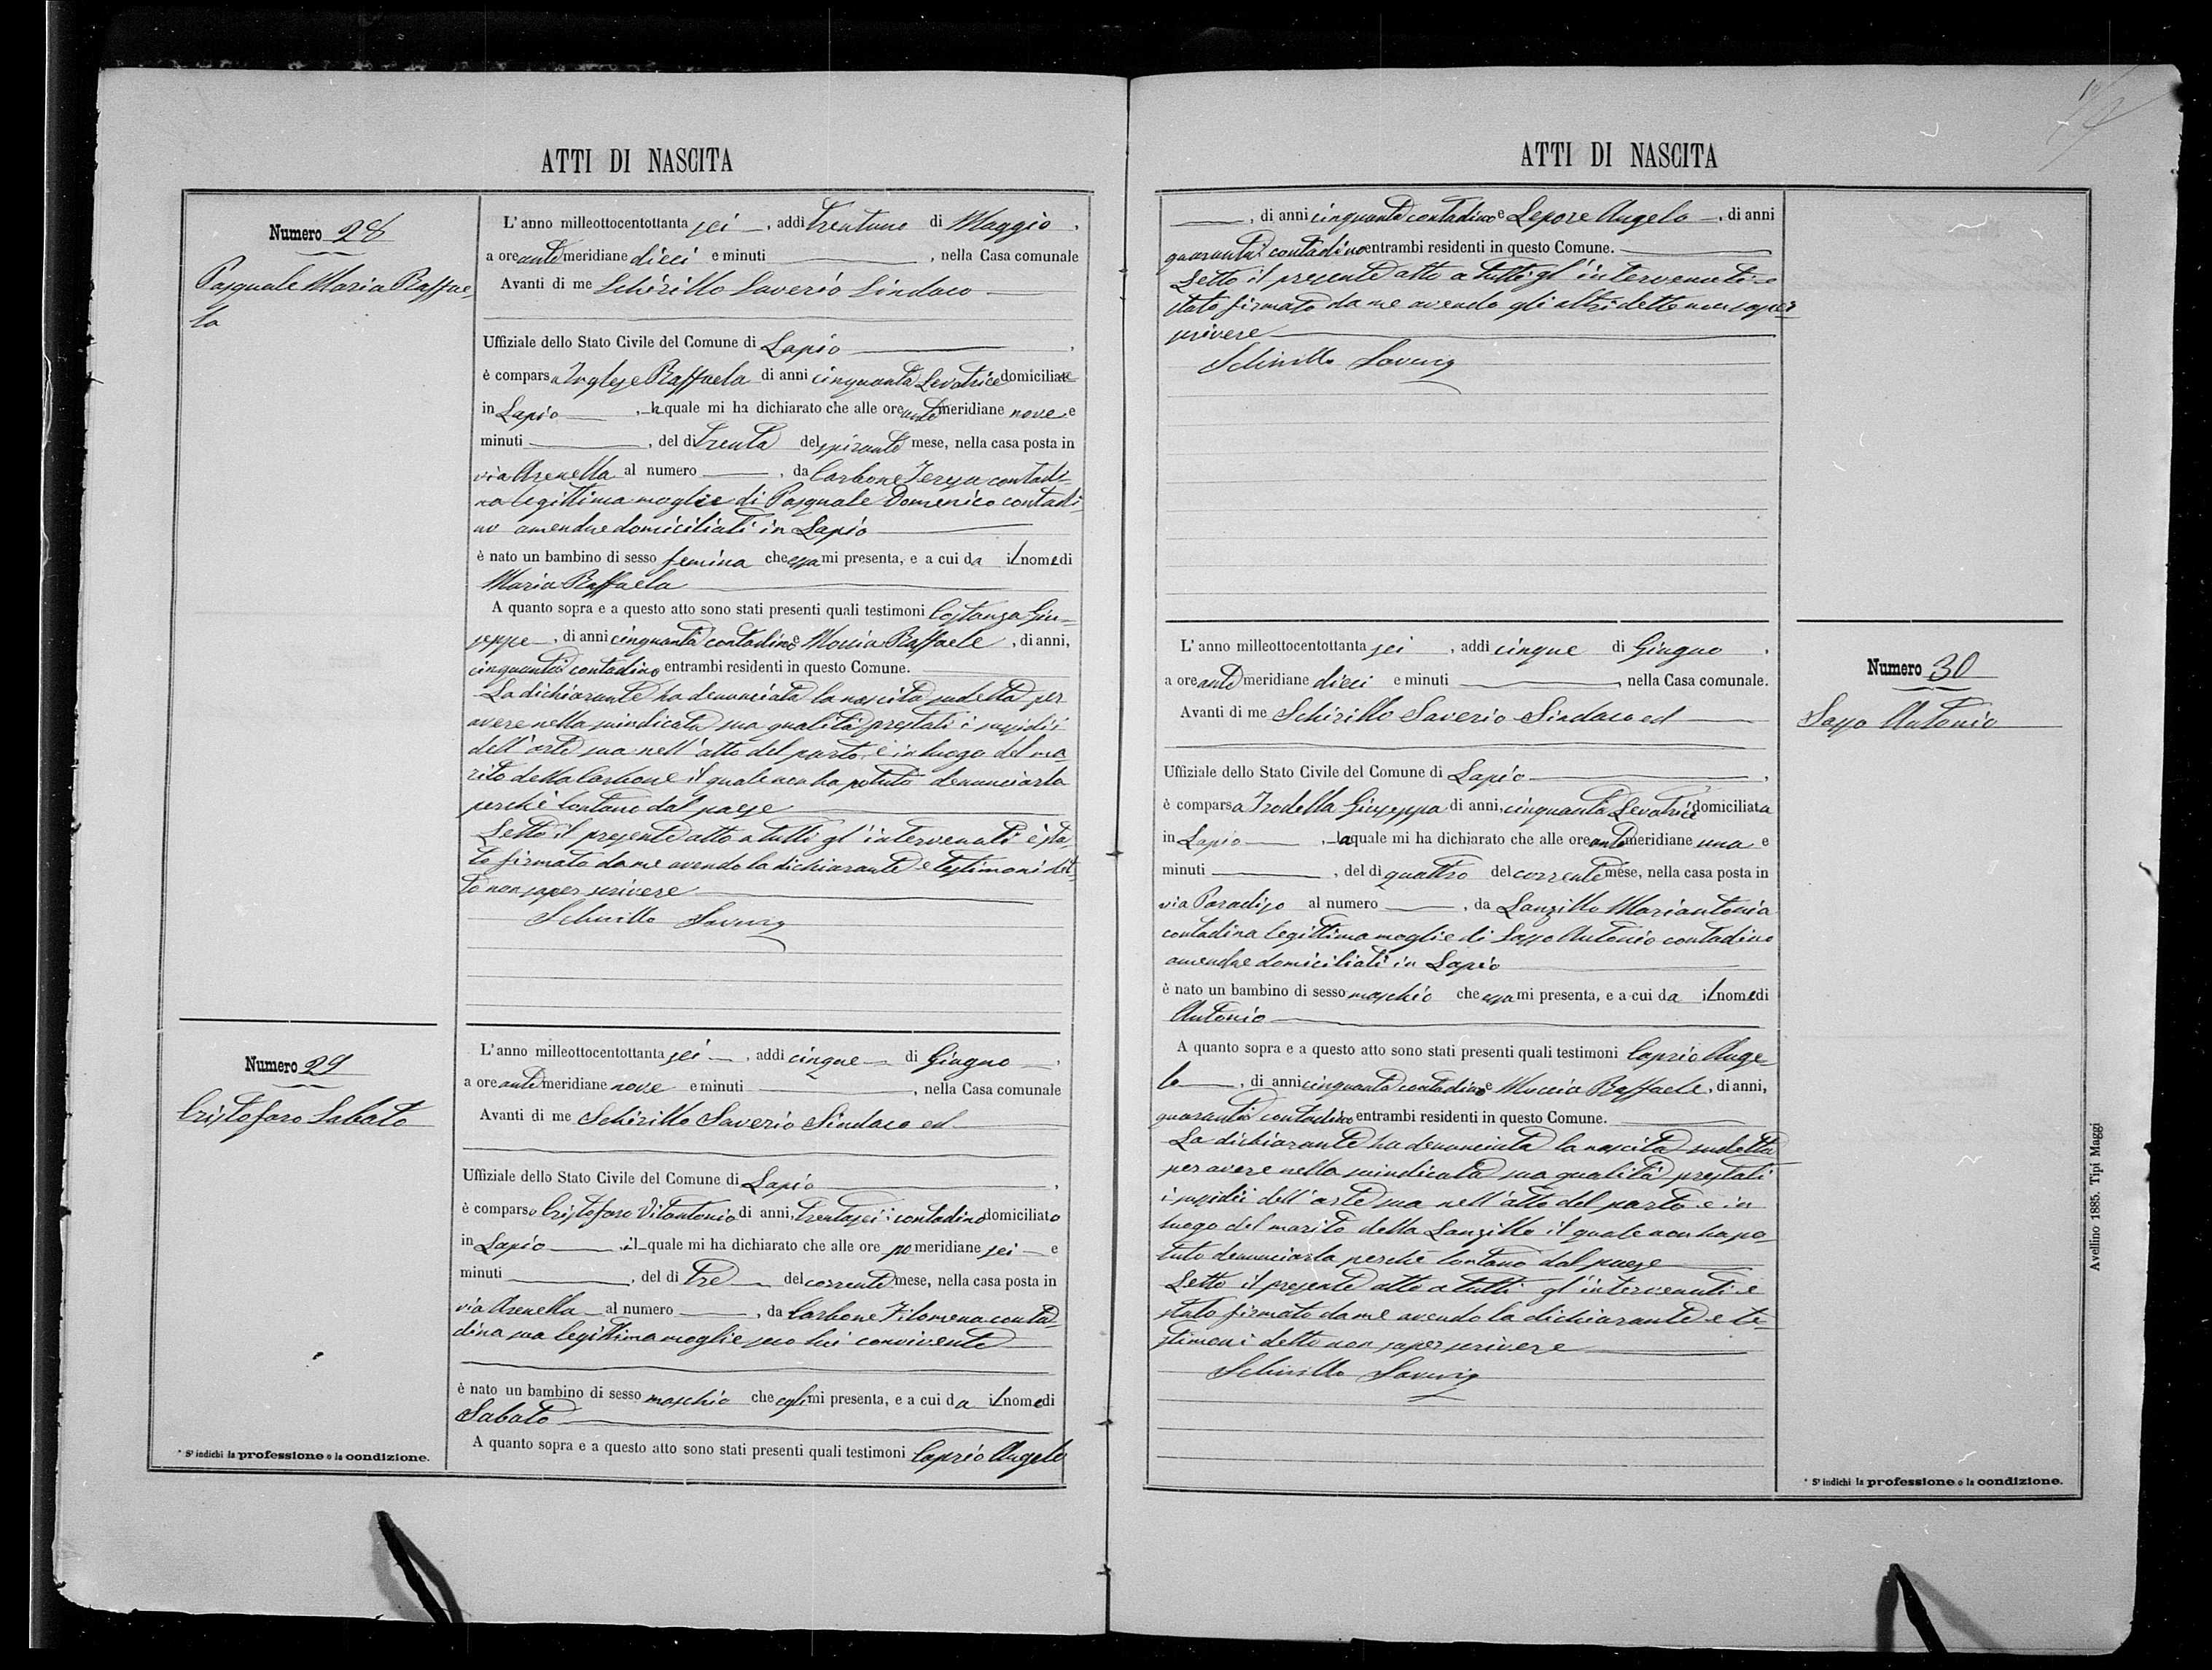 ATTI DI NASCITA
Numero 28
Pasquale Maria Raffae-
la
L'anno milleottocentottanta sei, addi trentuno di Maggio,
a ore anti meridiane dieci e minuti, nella Casa comunale
Avanti di me Schirillo Saverio Sindaco
Uffiziale dello Stato Civile del Comune di Lapio,
è comparsa Inglese Raffaela di anni cinquanta Levatrice domiciliata
in Lapio, la quale mi ha dichiarato che alle ore ante meridiane nove e
minuti, del dì trenta del spirante mese, nella casa posta in
via Arenella al numero, da Carbone Teresa contadi-
na legittima moglie di Pasquale Domenico contadi-
no amendue domiciliati in Lapio
è nato un bambino di sesso femina che essa mi presenta, e a cui da il nome di
Maria Raffaela
A quanto sopra e a questo atto sono stati presenti quali testimoni Costanza Giu-
seppe, di anni cinquanta contadino e Moccia Raffaele, di anni,
cinquanta contadino entrambi residenti in questo Comune.
La dichiarante ha denunciata la nascita sudetta per
avere nella suindicata sua qualità prestati i sussidii
dell'arte sua nell'atto del parto e in luogo del ma-
rito della Carbone il quale non ha potuto denunciarla
perchè lontano dal paese
Letto il presente atto a tutti gl'intervenuti è sta-
to firmato da me avendo la dichiarante e testimoni det-
to non saper scrivere
Schirillo Saverio
Numero 29
Cristofaro Sabato
L'anno milleottocentottanta sei, addi cinque di Giugno,
a ore anti meridiane nove e minuti, nella Casa comunale
Avanti di me Schirillo Saverio Sindaco ed
Uffiziale dello Stato Civile del Comune di Lapio,
è comparso Cristofaro Vitantonio di anni, trentasei contadino domiciliato
in Lapio, il quale mi ha dichiarato che alle ore po meridiane sei e
minuti, del dì tre del corrente mese, nella casa posta in
via Arenella al numero, da Carbone Filomena conta-
dina sua legittima moglie seco lui convivente
è nato un bambino di sesso maschio che egli mi presenta, e a cui da il nome di
Sabato
A quanto sopra e a questo atto sono stati presenti quali testimoni Caprio Angelo
* S' indichi la professione o la condizione.
ATTI DI NASCITA
, di anni cinquanta contadino e Lepore Angelo, di anni
quaranta contadino entrambi residenti in questo Comune.
Letto il presente atto a tutti gl'intervenuti è
stato firmato da me avendo gli altri detto non saper
scrivere
Schirillo Saverio
L'anno milleottocentottanta sei, addi cinque di Giugno,
a ore anti meridiane dieci e minuti, nella Casa comunale.
Avanti di me Schirillo Saverio Sindaco ed
Uffiziale dello Stato Civile del Comune di Lapio,
è comparsa Trodella Giuseppa di anni, cinquanta Levatrice domiciliata
in Lapio, la quale mi ha dichiarato che alle ore ante meridiane una e
minuti, del dì quattro del corrente mese, nella casa posta in
via Paradiso al numero, da Lanzillo Mariantonia
contadina legittima moglie di Sasso Antonio contadino
amendue domiciliati in Lapio
è nato un bambino di sesso maschio che essa mi presenta, e a cui da il nome di
Antonio
A quanto sopra e a questo atto sono stati presenti quali testimoni Caprio Ange-
lo, di anni cinquanta contadino e Moccia Raffaele, di anni,
quaranta contadino entrambi residenti in questo Comune.
La dichiarante ha denunciata la nascita sudetta
per avere nella suindicata sua qualità prestati
i sussidii dell'arte sua nell'atto del parto e in
luogo del marito della Lanzillo il quale non ha po-
tuto denunciarla perchè lontano dal paese
Letto il presente atto a tutti gl'intervenuti è
stato firmato da me avendo la dichiarante e te-
stimoni detto non saper scrivere
Schirillo Saverio
Numero 30
Sasso Antonio
Avellino 1885. Tipi Maggi
* S' indichi la professione o la condizione.